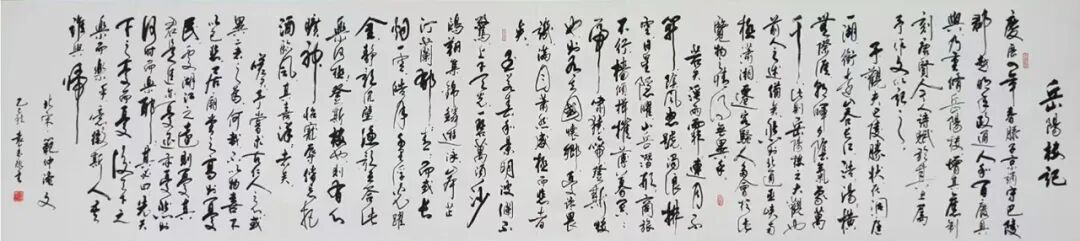 岳陽楼記
慶曆四年春滕子京謫守巴陵
郡越明年政通人和百廢具
興乃重修岳陽楼增其舊制
刻唐賢今人诗賦於其上属
予作文以記之
予觀夫巴陵勝状在洞庭
一湖銜遠山吞長江浩浩湯湯横
無際涯朝暉夕陰氣象萬
千此則岳陽楼之大觀也
前人之述備矣然則北通巫峡南
極瀟湘遷客騷人多會於此
覽物之情得無異乎
若夫淫雨霏霏連月不
開陰風怒號濁浪排
空日星隱曜山岳潛形商旅
不行檣傾楫摧薄暮冥冥
虎嘯猿啼登斯楼
也則有去國懷鄉憂讒畏
譏滿目蕭然感極而悲者
矣
至若春和景明波瀾不
驚上下天光一碧萬顷沙
鷗翔集錦鱗游泳岸芷
汀蘭郁郁青青而或長
烟一空皓月千里浮光躍
金静影沉璧漁歌互答此
樂何極登斯楼也則有心
曠神怡寵辱偕忘把
酒臨風其喜洋洋者矣
嗟夫予嘗求古仁人之心或
異二者之為何哉不以物喜不
以己悲居廟堂之高則憂其
民處江湖之遠則憂其
君是進亦憂退亦憂然則
何时而樂耶其必曰先天
下之憂而憂後天下之
樂而樂乎噫微斯人吾
誰與歸
北宋范仲淹文